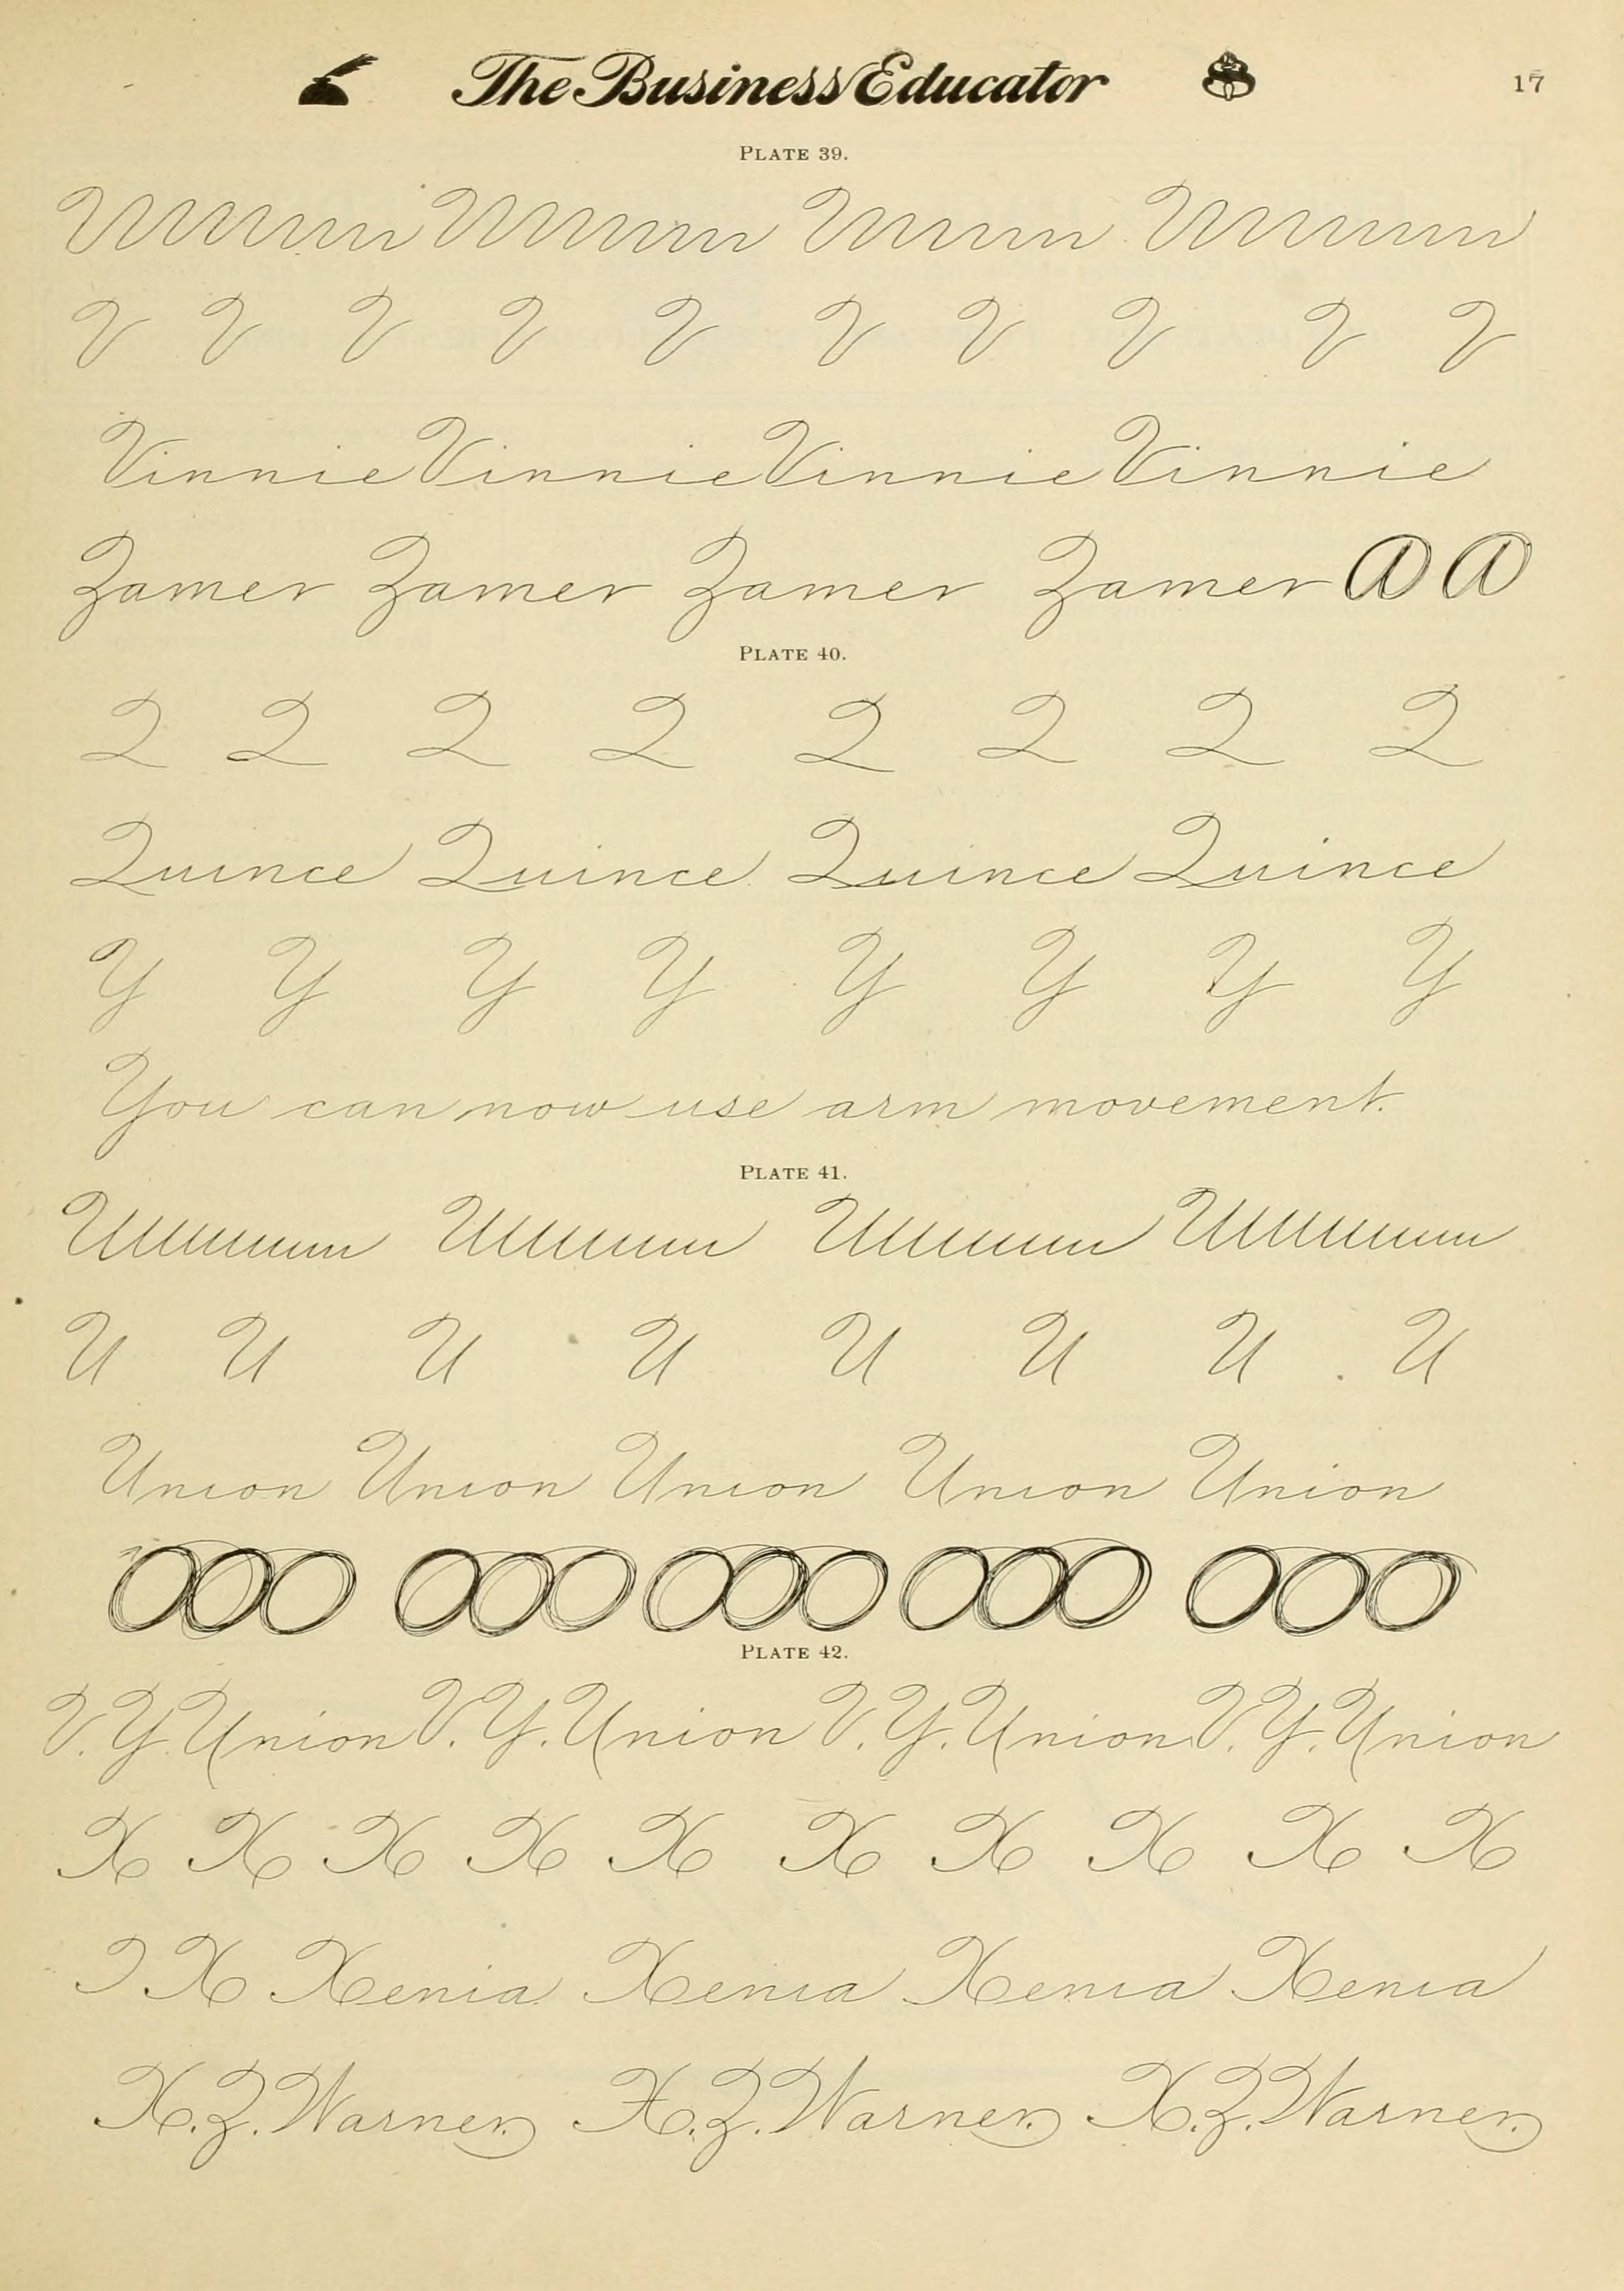 The Business Educator 17
PLATE 39.
V V V V V V V V V V
Vinnie Vinnie Vinnie Vinnie
Zamer Zamer Zamer Zamer
PLATE 40.
Q Q Q Q Q Q Q Q
Quince Quince Quince Quince
Y Y Y Y Y Y Y Y
You can now use arm movement.
PLATE 41.
U U U U U U U U
Union Union Union Union Union
PLATE 42.
V. Y. Union V. Y. Union V. Y. Union V. Y. Union
X X X X X X X X X X
X Xenia Xenia Xenia Xenia
X. Z. Warner. X. Z. Warner. X. Z. Warner.